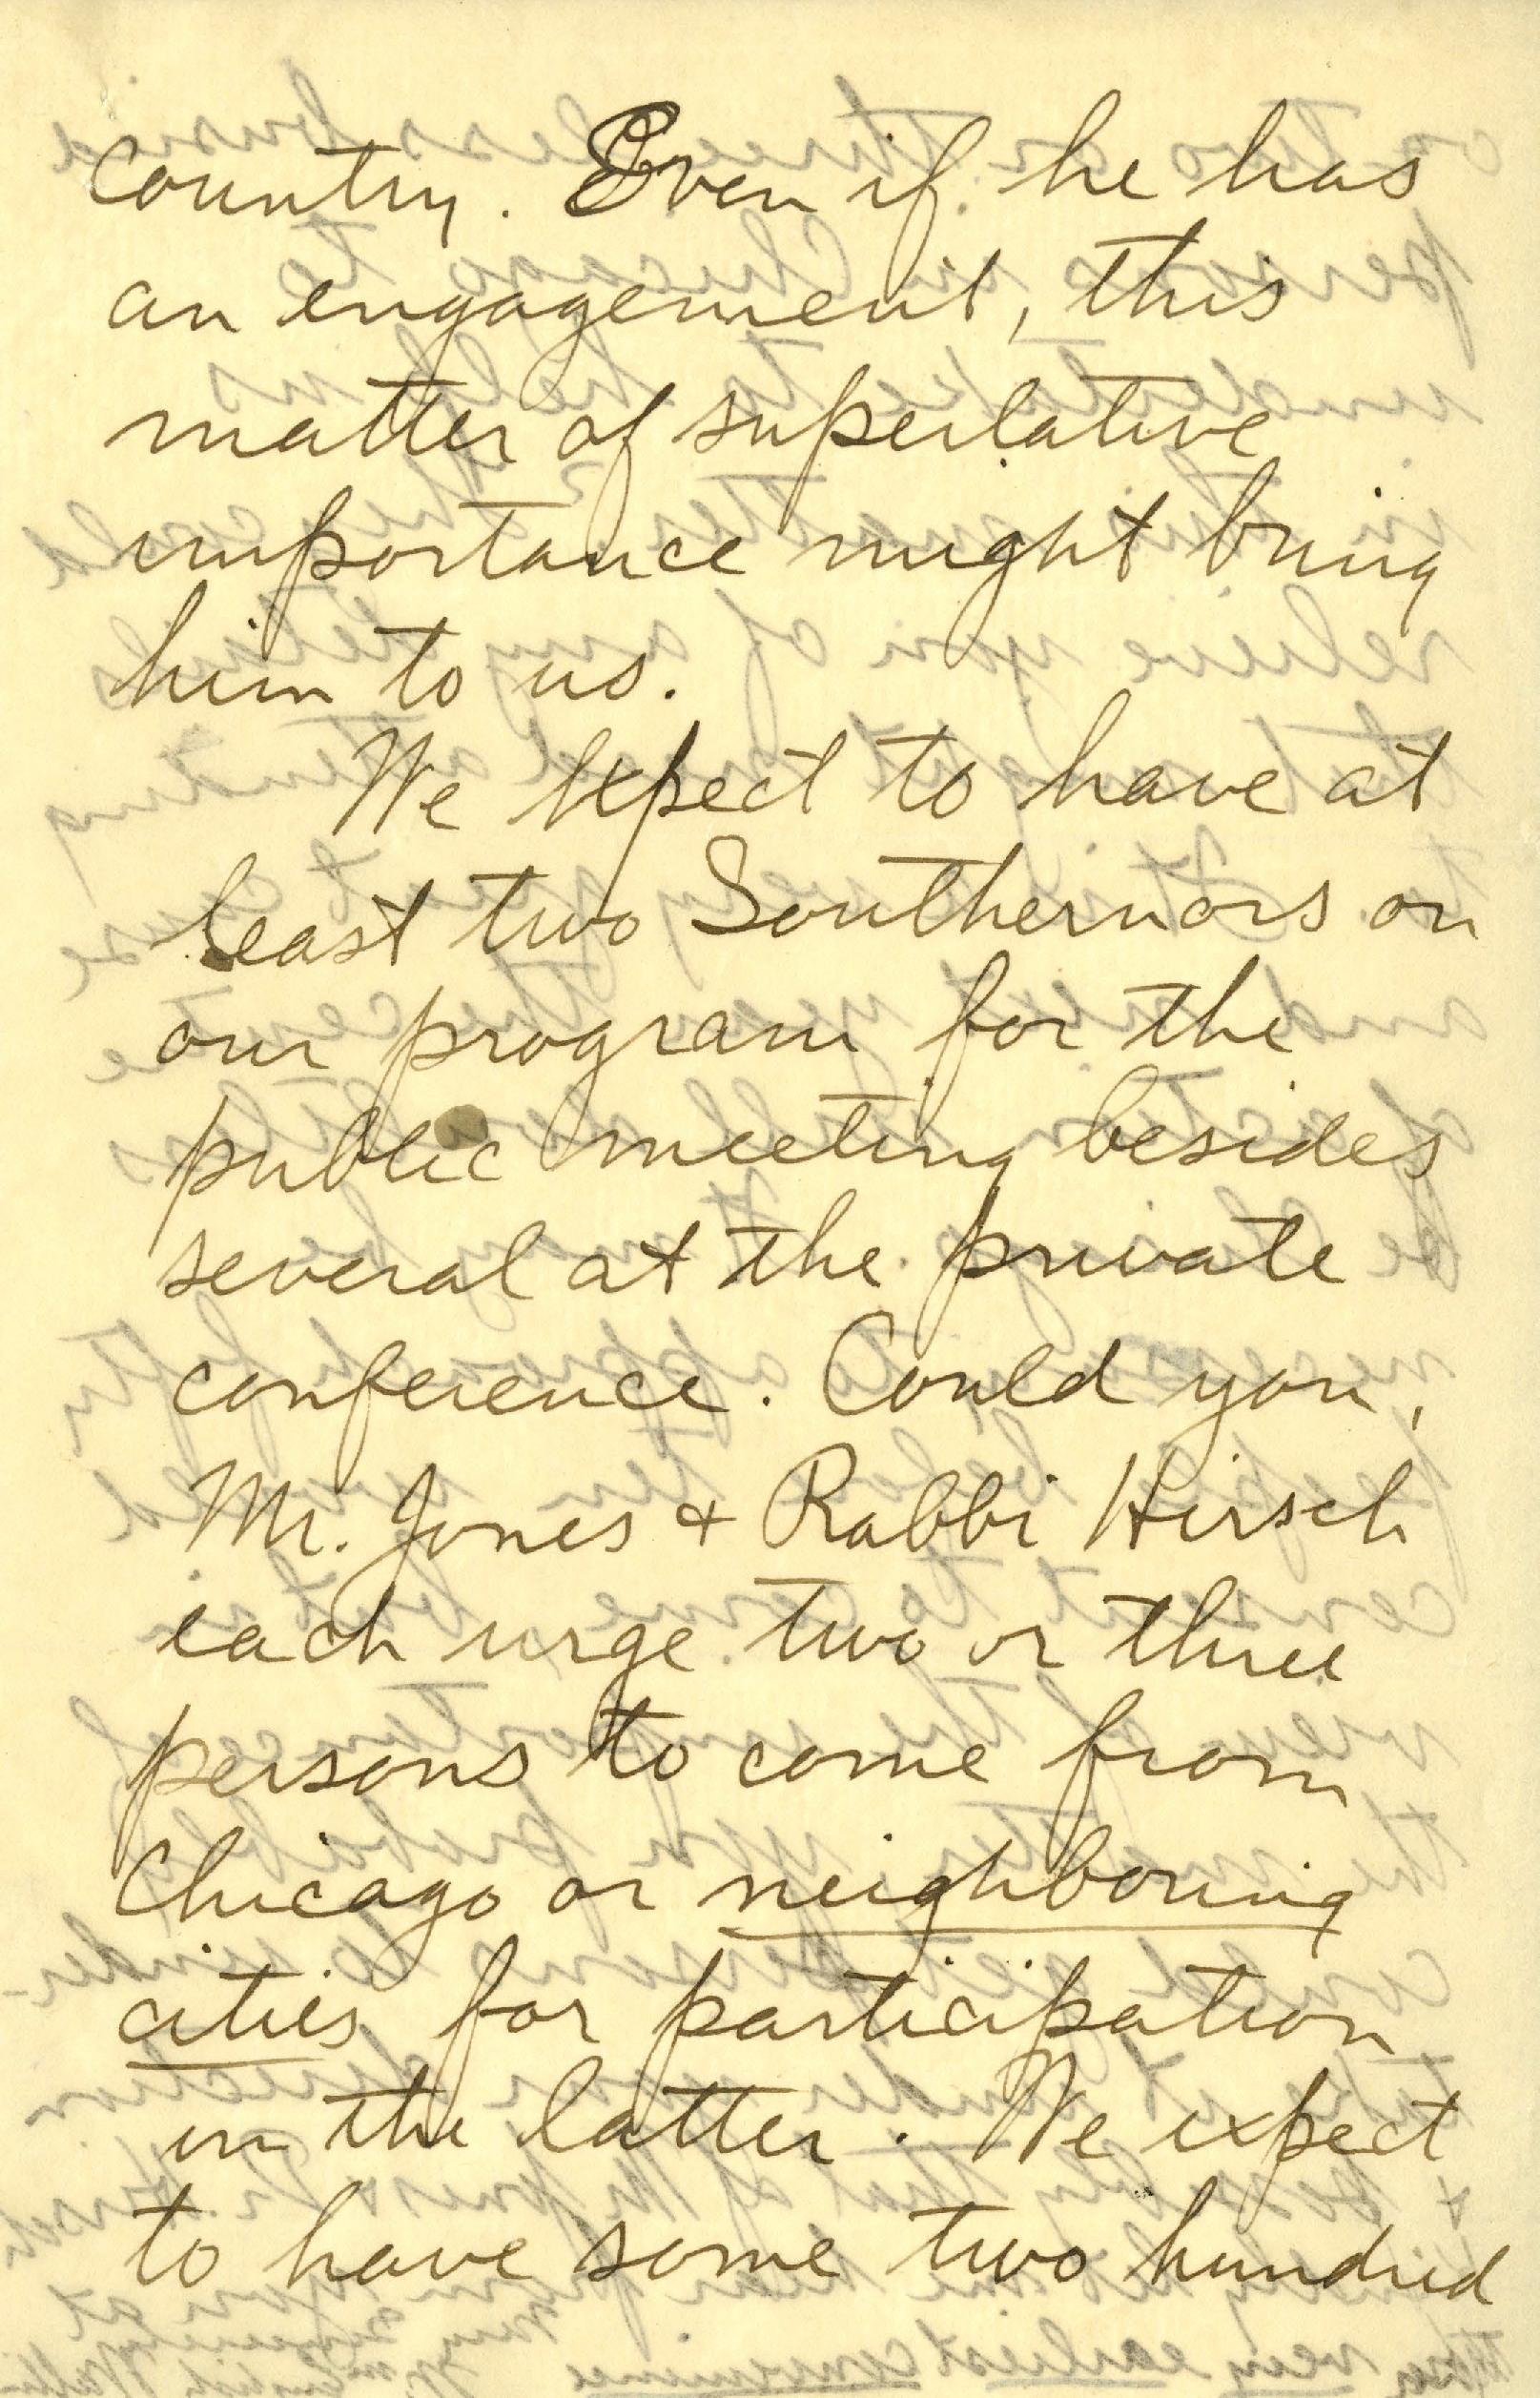 country. Even if he has
an engagement, this
matter of superlative
importance might bring
him to us.
We expect to have at
least two Southernors on
our program for the
public meeting besides
several at the private
conference. Could you,
Mr. Jones + Rabbi Hirsch
each urge two or three
persons to come from
Chicago or neighboring
cities for participation
in the latter. We expect
to have some two hundred